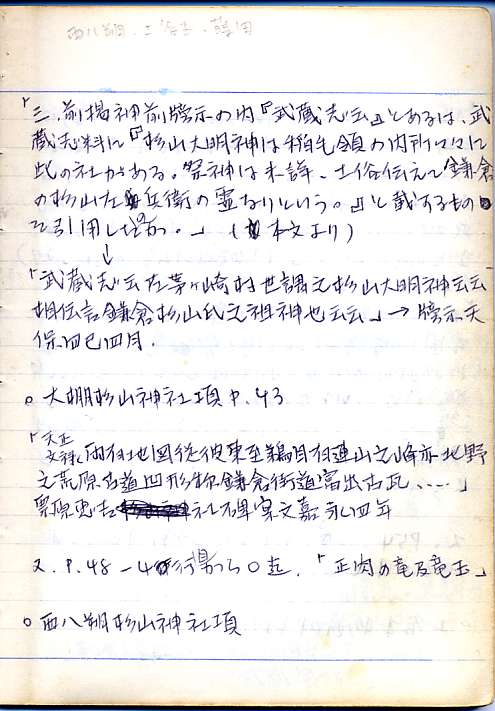 「三.前掲神前牓示の内『武蔵志云』とあるは、武
蔵志料に『杉山大明神は稲毛領の内所々に
此の社がある。祭神は未詳、土俗伝えて鎌倉
の杉山左兵衛の霊なりという。』と載するもの
を引用したるか。」(本文より)
↓
「武蔵志云在茅ヶ崎村世謂之杉山大明神云云
相伝言鎌倉杉山氏之祖神也云云」→牓示天
保四巳四月.
○ 大棚杉山神社項P.43
天正
「文禄 両村地図従彼東至鶴目有連山之峰亦北野
之荒原古道凹形称鎌倉街道富出古瓦.....」
栗原恵吉 社 嘉永四年
2.P.48 「正内の竜及竜王」
○ 西八朔杉山神社項